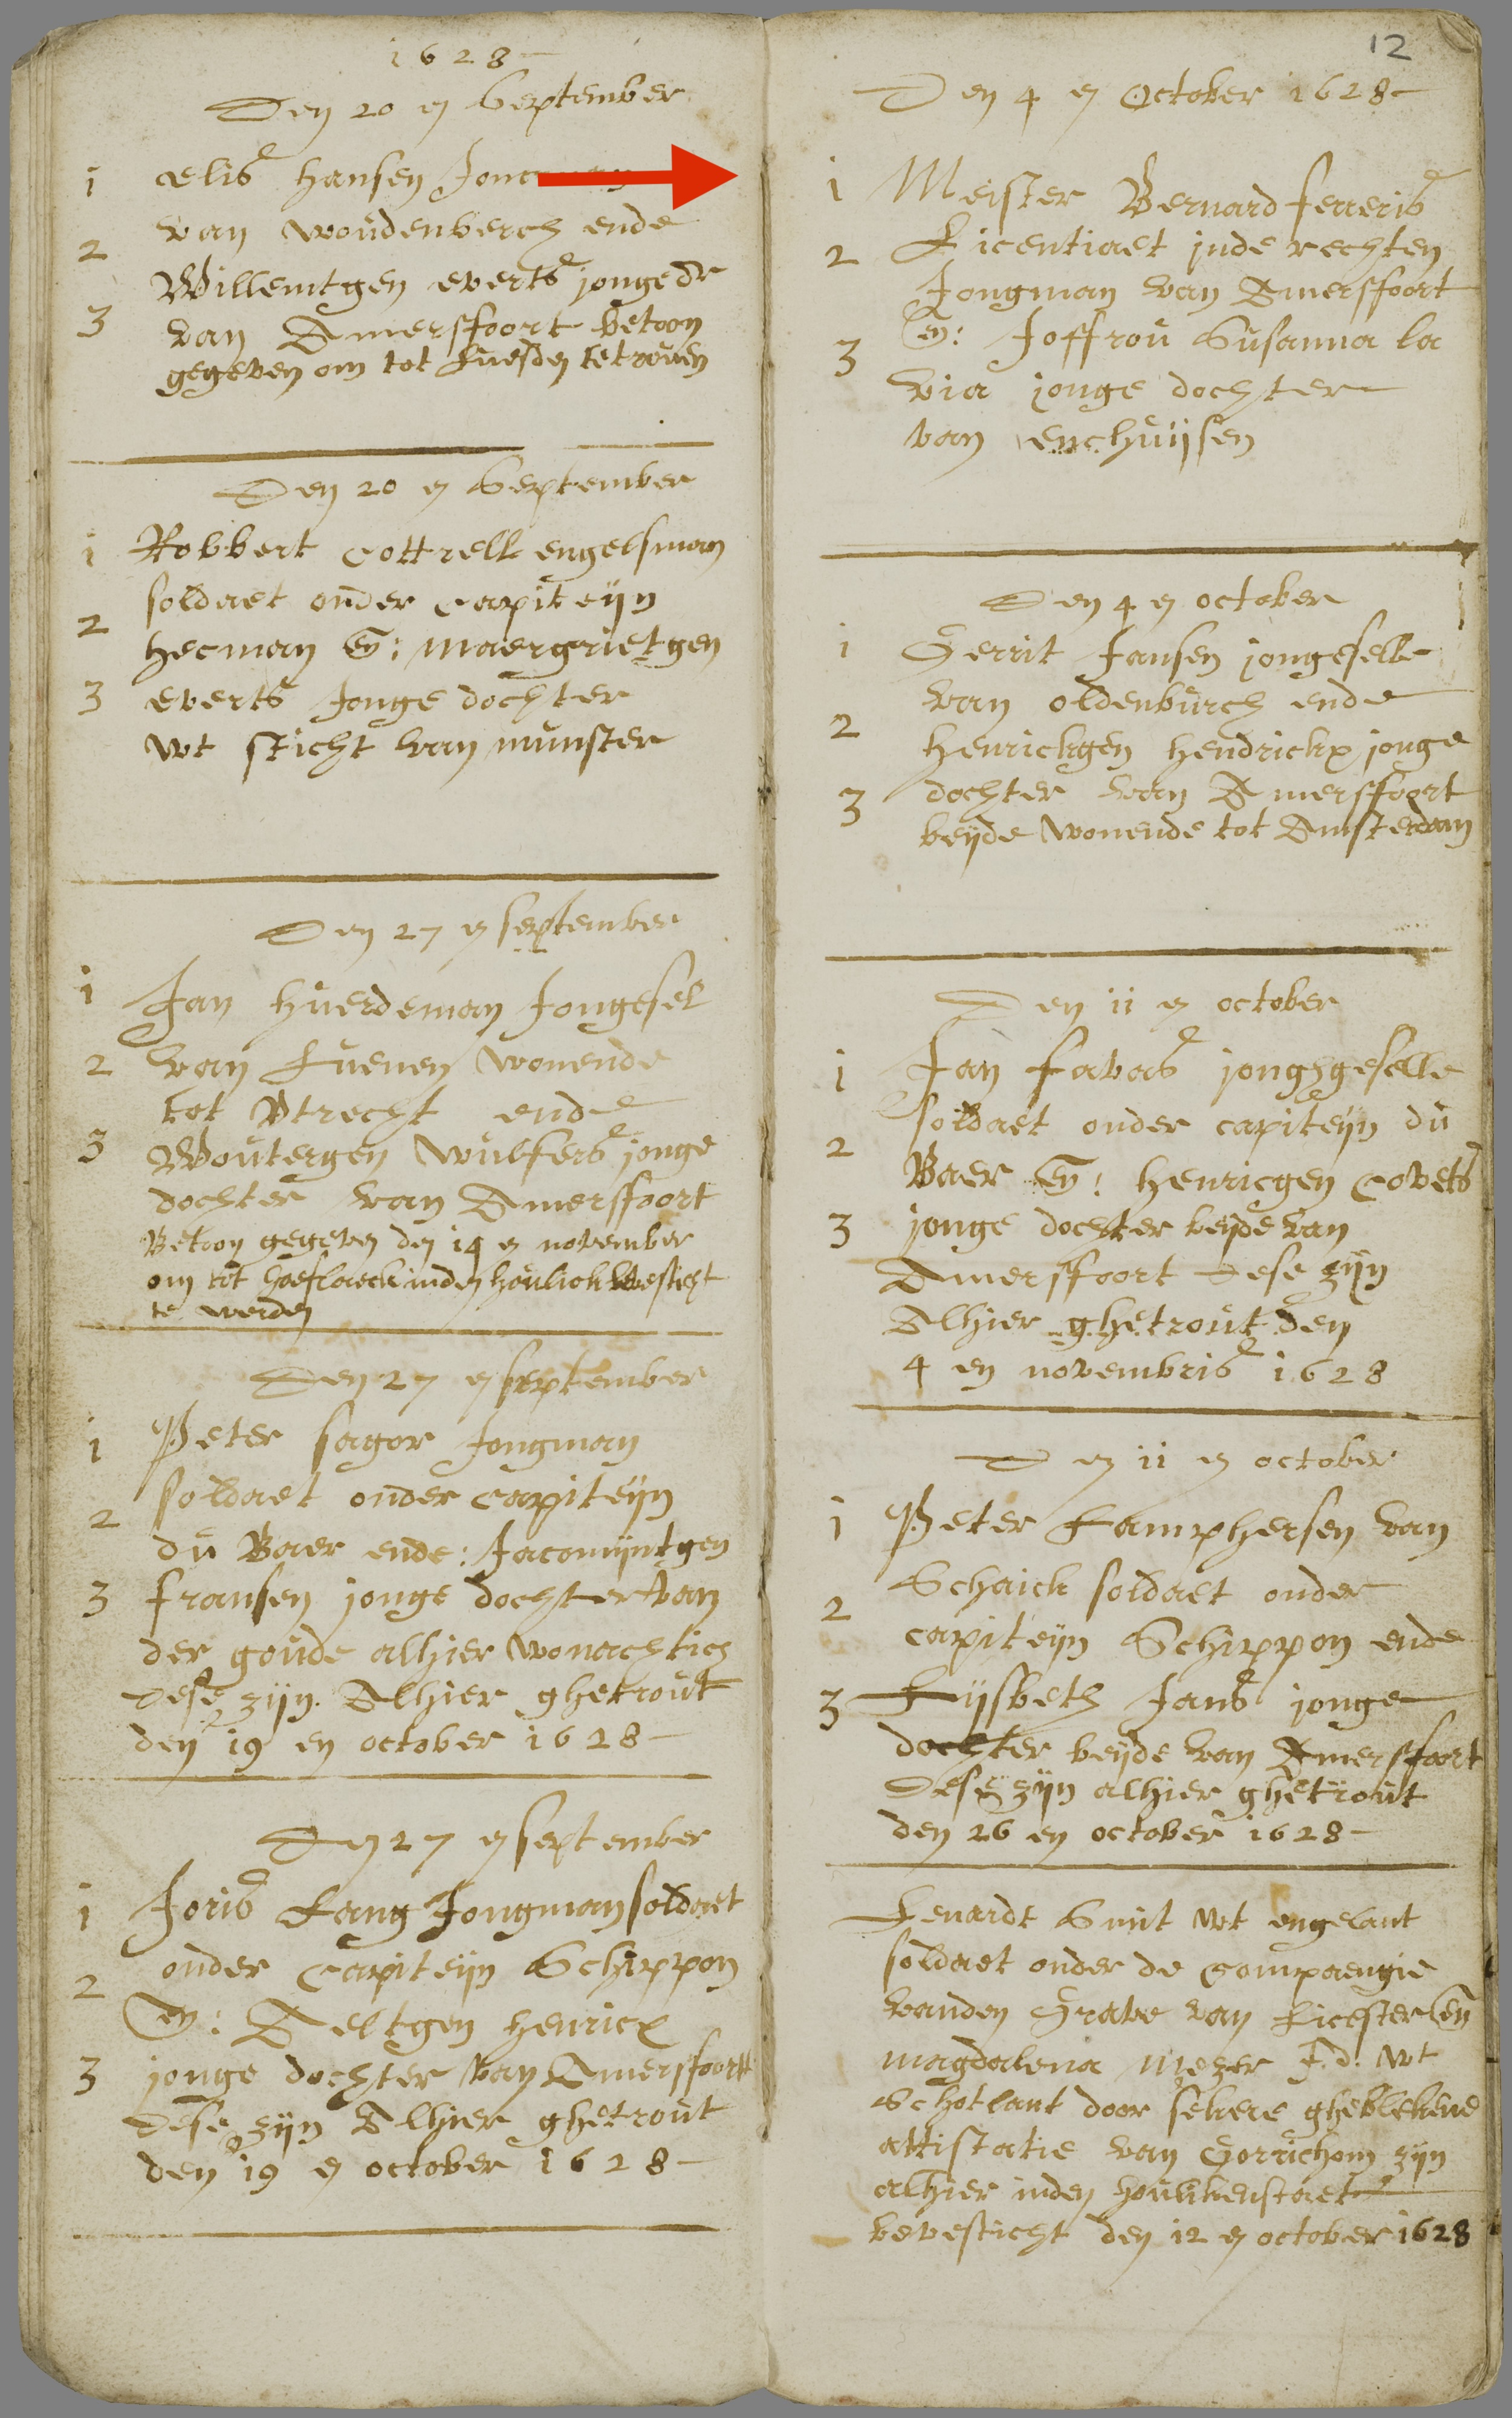 1628
Den 20 en September
1 Aelis hansen
van woudenberch ende
2
Willemtgen everts jonge dr
3 van Amersfoort betoon
gegeven om tot Luesden te trouen
Den 20 en September
1 Robbert Cottrell engelsman
soldaet onder Capiteijn
2 hecman en: Maergrietgen
3 everts Jonge dochter
wt sticht van munster
Den 27 en september
1 Jan huerdeman Jongesel
2 van Luenen wonende
tot Vtrecht ende
3 Woutergen Wulfers jonge
dochter van Amersfoort
Betoon gegeven den 14 en november
om tot hoeflaeck inden houlick bevesticht
te werden
Den 27 en september
1 Peter sagor Jongman
soldaet onder Capiteijn
2
du Baer ende: Jacomijntgen
3 fransen jonge dochter van
der goude alhier wonachtich
dese zijn Alhier ghetrout
den 19 en october 1628
Den 27 en september
1 Joris Lang Jongman soldaet
onder Capiteijn Schippon
2
en: Aeltgen henricx
3 jonge dochter van Amersfoortt
dese zijn Alhier ghetrout
den 19 en october 1628
12
Den 4 en October 1628
1 Meister Bernard ferreris
2 Licentiaet inde rechten
Jongman van Amersfoort
3 en: Joffrou Susanna la
via jonge dochter
van enchuijsen
Den 4 en october
1 Gerrit Jansen jongeselle
van oldenburch ende
2
henrickgen hendrickx jonge
3 dochter van Amersfoort
beijde wonende tot Amsterdam
Den 11 en october
1 Jan favas jonghgeselle
soldaet onder capiteijn du
2
Baer en: henricgen Covets
3 jonge dochter beijde van
Amersfoort dese zijn
Alhier ghetrout den
4 en novembris 1628
Den 11 en october
1 Peter Lamphersen van
2 Schaick soldaet onder
capiteijn Schippon ende
3 Lijsbeth Jans jonge
dochter beijde van Amersfoort
dese zijn alhier ghetrout
den 26 en october 1628
Lenardt Smit wt engelant
soldaet onder de Compaengie
vanden Grave van Licester en
magdalena J.d. wt
Schotlant door sekere ghebleKene
attistatie van Gorrichom zijn
alhier inden houlikenstaet
bevesticht den 12 en october 1628